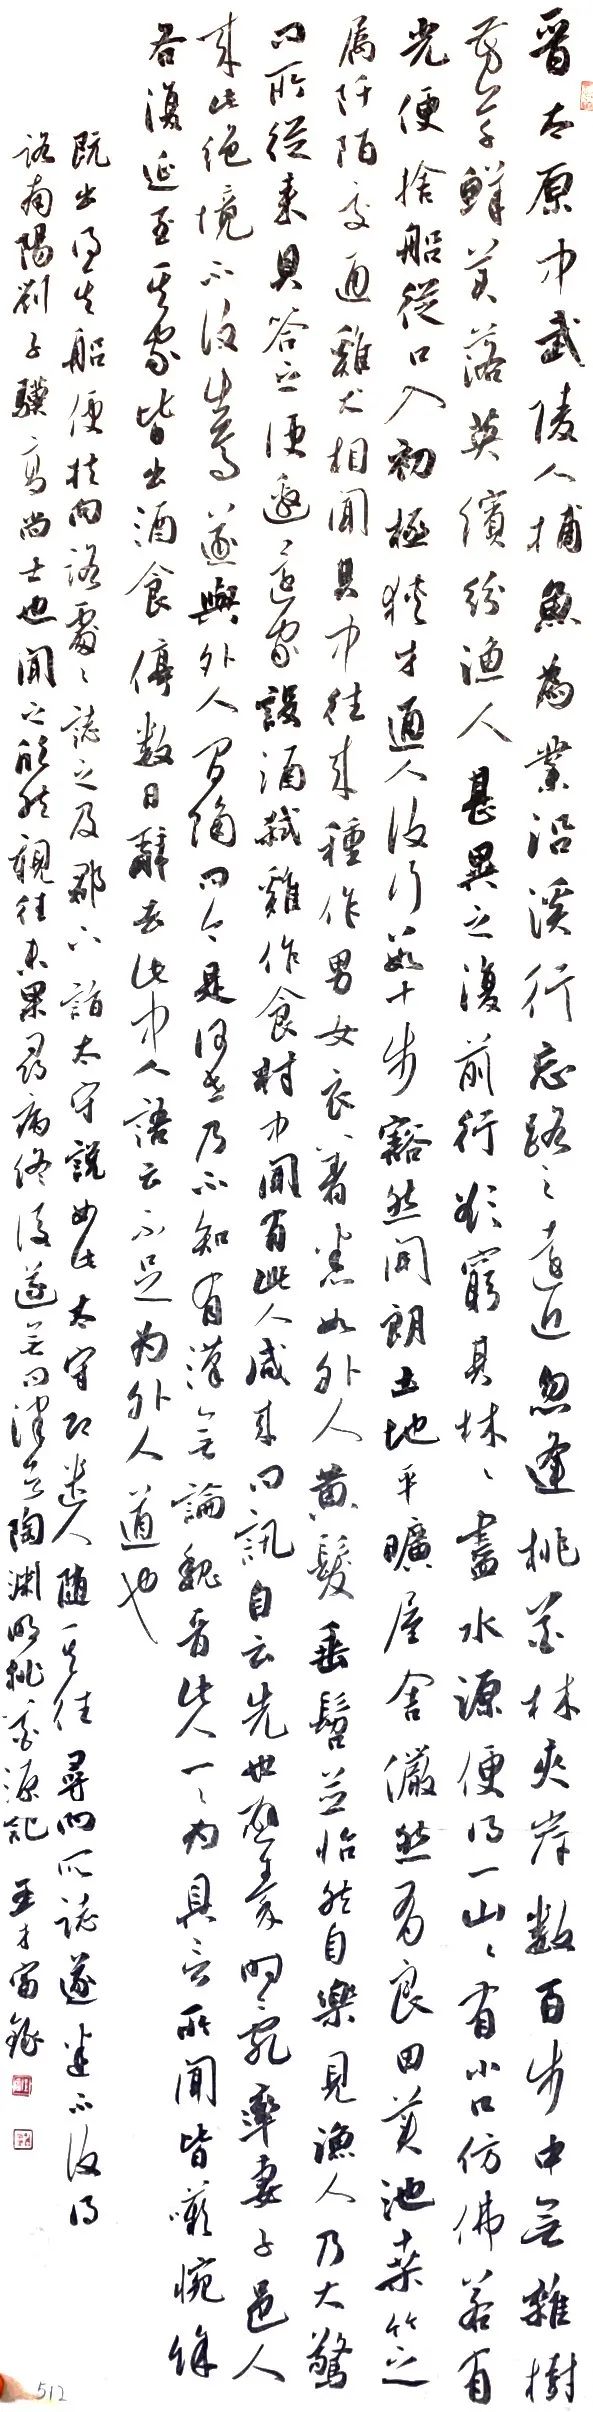 晋太原中武陵人捕魚為業沿溪行忘路之遠近忽逢桃花林夾岸數百步中無雜樹
芳草鮮美落英繽紛漁人甚異之復前行欲窮其林林盡水源便得一山山有小口仿佛若有
光便捨船從口入初極狹才通人復行數十步豁然開朗土地平曠屋舍儼然有良田美池桑竹之
属阡陌交通雞犬相聞其中往来種作男女衣著悉如外人黄髮垂髫並怡然自樂見漁人乃大驚
问所從来具答之便邀邀還家設酒殺雞作食村中聞有此人咸来问訊自云先世避秦時時亂率妻子邑人
来此絶境不復出焉遂與外人间隔问今是何世乃不知有漢無論魏晋此人一一為具言所聞皆嘆惋餘人
各復延至其家皆出酒食停數日辭去此中人語云不足為外人道也
既出得其船便扶向路處處誌之及郡下詣太守說如此太守即遣人随其往尋向所誌遂迷不復得
路南陽劉子驥高尚士也聞之欣然親往未果尋病终後遂無问津者陶渊明桃花源記 王才宙録
512